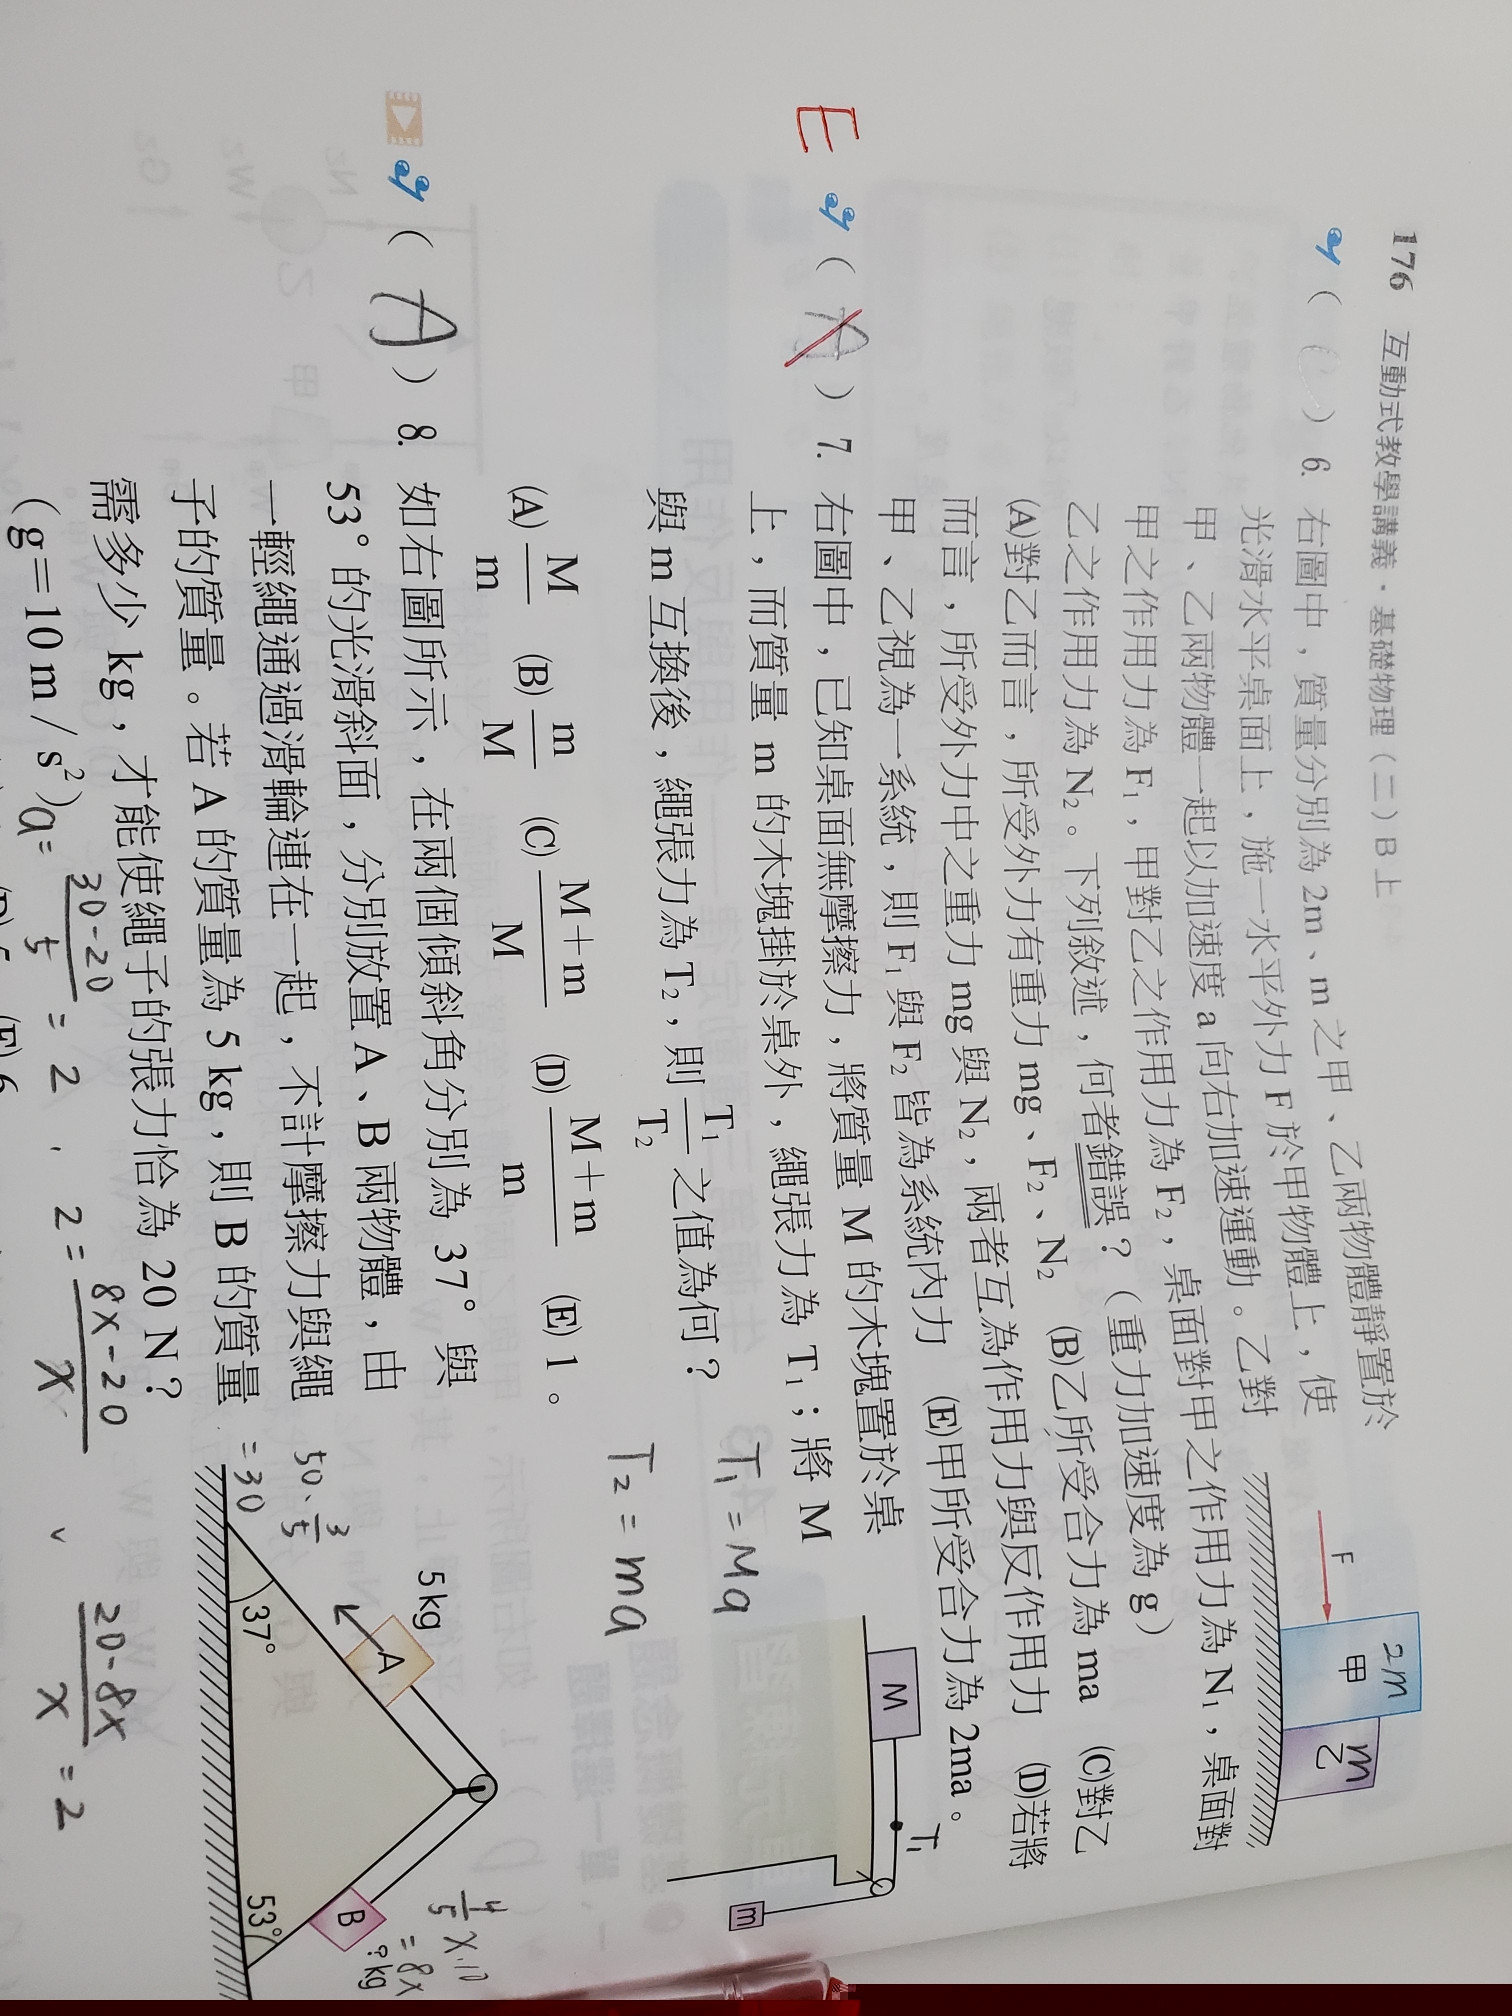 176 互動式教學講義・基礎物理（二）B上
( ) 6. 右圖中，質量分別為 2m、m 之甲、乙兩物體靜置於
光滑水平桌面上，施一水平外力 F 於甲物體上，使
甲、乙兩物體一起以加速度 a 向右加速運動。乙對
甲之作用力為 F₁，甲對乙之作用力為 F₂，桌面對甲之作用力為 N₁，桌面對
乙之作用力為 N₂。下列敘述，何者錯誤？（重力加速度為 g）
(A)對乙而言，所受外力有重力 mg、F₂、N₂ (B)乙所受合力為 ma (C)對乙
而言，所受外力中之重力 mg 與 N₂，兩者互為作用力與反作用力 (D)若將
甲、乙視為一系統，則 F₁ 與 F₂ 皆為系統內力 (E)甲所受合力為 2ma。
F
2m
甲
m
乙
E
( A ) 7. 右圖中，已知桌面無摩擦力，將質量 M 的木塊置於桌
上，而質量 m 的木塊掛於桌外，繩張力為 T₁；將 M
與 m 互換後，繩張力為 T₂，則 T₁/T₂ 之值為何？
(A) M/m (B) m/M (C) M+m/M (D) M+m/m (E) 1。
T₁=Ma
T₂=ma
M
T₁
m
( A ) 8. 如右圖所示，在兩個傾斜角分別為 37° 與
53° 的光滑斜面，分別放置 A、B 兩物體，由
一輕繩通過滑輪連在一起，不計摩擦力與繩
子的質量。若 A 的質量為 5 kg，則 B 的質量
需多少 kg，才能使繩子的張力恰為 20 N？
(g＝10 m/s²)
50・3/5
=30
5 kg
A
37°
53°
B
? kg
4/5 x・10
=8x
a= 30-20/5 = 2 , 2= 8x-20/x
20-8x/x = 2